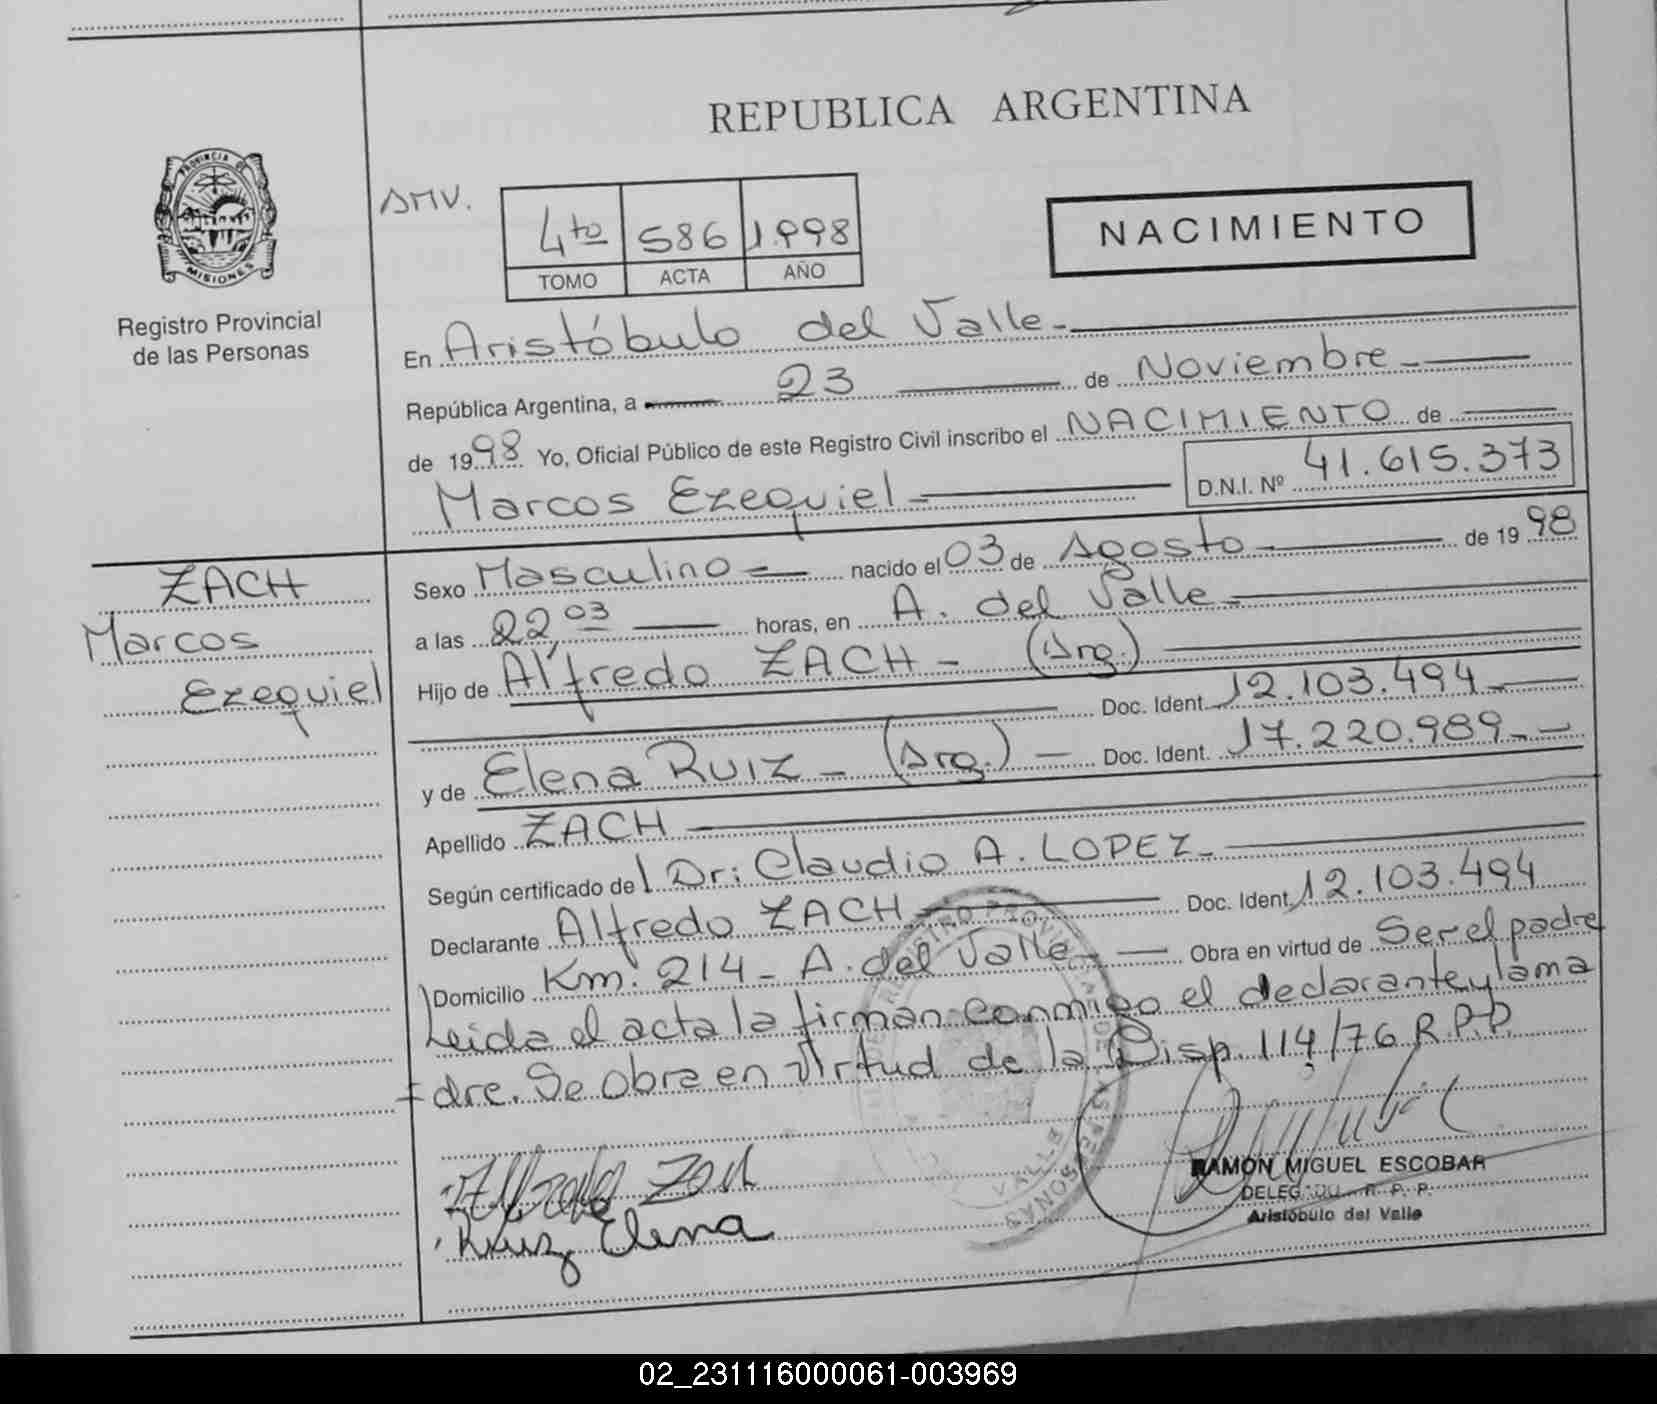 REPUBLICA ARGENTINA
PROVINCIA DE
MISIONES
Registro Provincial
de las Personas
4to 586 1.998
TOMO ACTA AÑO
NACIMIENTO
En Aristóbulo del Valle.-
República Argentina, a 23 de Noviembre.-
de 1998 Yo, Oficial Público de este Registro Civil inscribo el NACIMIENTO de
Marcos Ezequiel.- D.N.I. Nº 41.615.373
ZACH
Marcos
Ezequiel
Sexo Masculino.- nacido el 03 de Agosto.- de 1998
a las 22,03 horas, en A. del Valle.-
Hijo de Alfredo ZACH.- (Arg.)
Doc. Ident. 12.103.494.-
y de Elena RUIZ.- (Arg.) Doc. Ident. 17.220.989.-
Apellido ZACH
Según certificado del Dr: Claudio A. LOPEZ.-
Declarante Alfredo ZACH Doc. Ident. 12.103.494
Domicilio Km. 214- A. del Valle.- Obra en virtud de Ser el padre
Leida el acta la firman conmigo el declarante y la ma
dre. Se obra en virtud de la Disp. 114/76 R.P.P.
Alfredo Zach
Ruiz Elena
RAMON MIGUEL ESCOBAR
DELEGADO R. P. P.
Aristóbulo del Valle
02_231116000061-003969